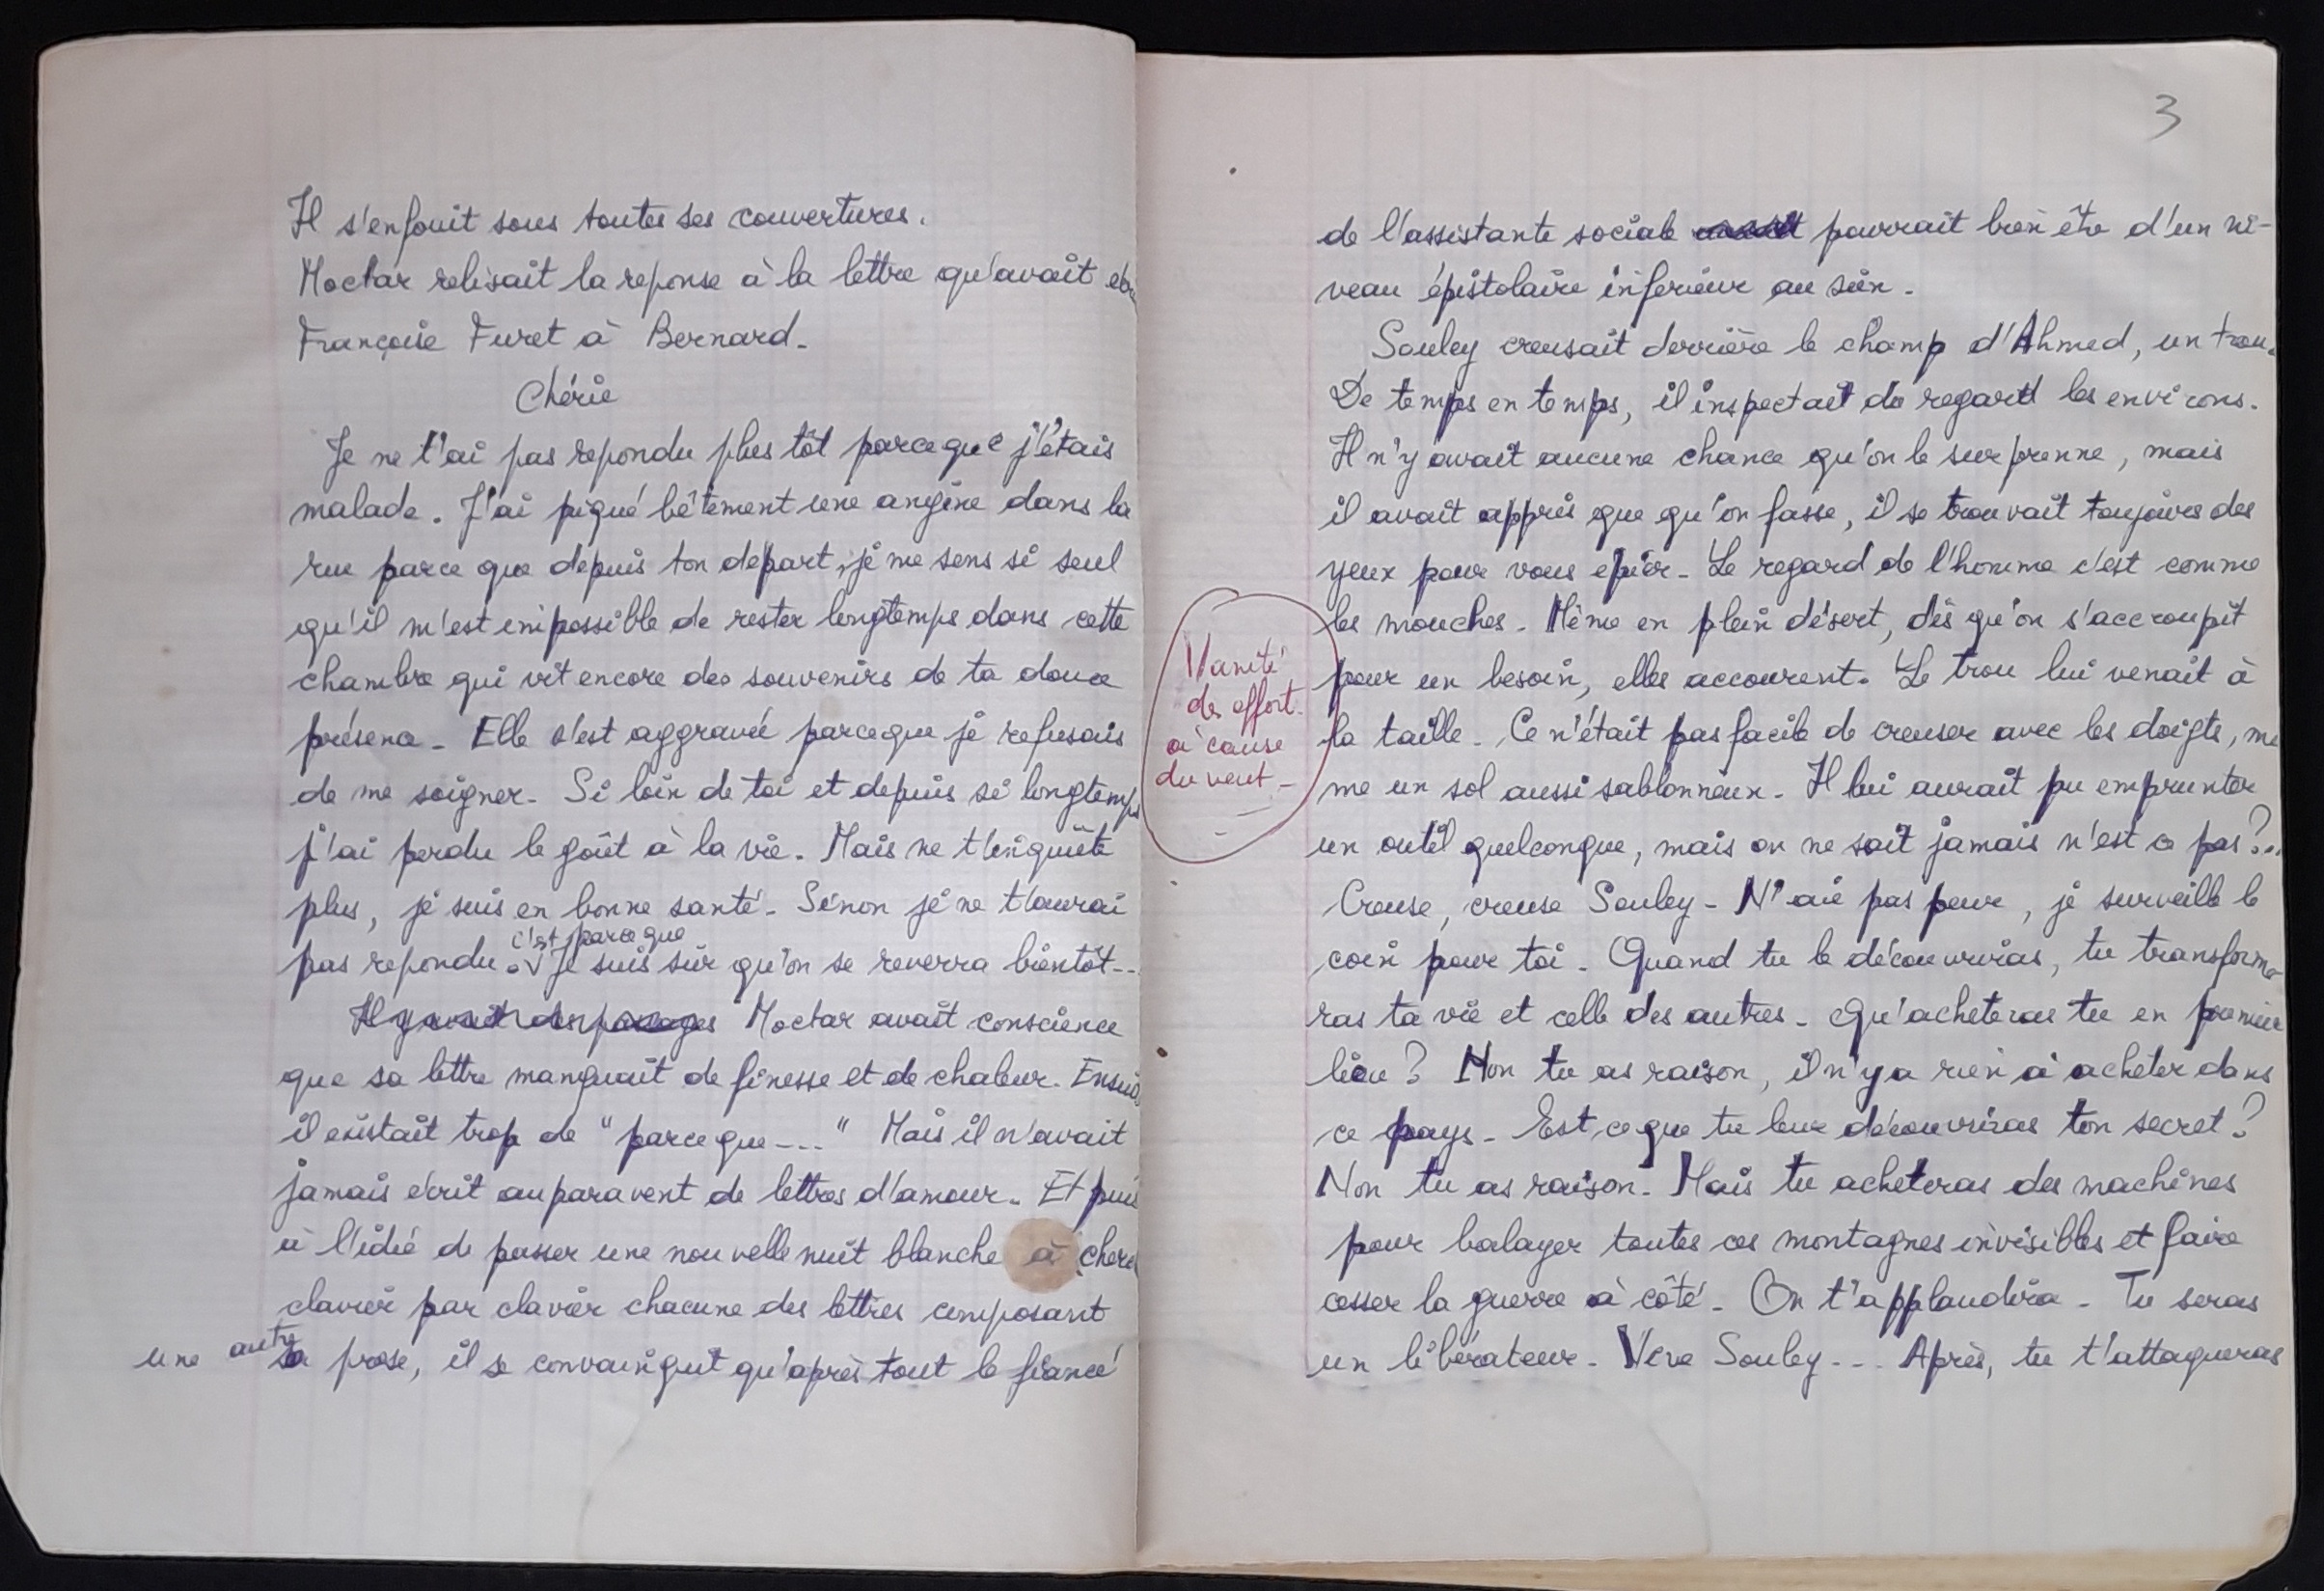 Il s'enfouit sous toutes ses couvertures.
Moctar relisait la reponse à la lettre qu'avait
Françoise Furet à Bernard.
Chérie
Je ne t'ai pas repondu plus tôt parceque j'étais
malade. J'ai piqué bêtement une angine dans la
rue parce que depuis ton depart, je me sens si seul
qu'il m'est impossible de rester longtemps dans cette
chambre qui vit encore des souvenirs de ta douce
présence. Elle s'est aggravée parceque je refusais
de me soigner. Si loin de toi et depuis si longtemps
j'ai perdu le goût à la vie. Mais ne t'inquiète
plus, je suis en bonne santé. Sinon je ne t'aurai
c'est parce que
pas repondu. Je suis sûr qu'on se reverra bientôt...
Il y avait des passages Moctar avait conscience
que sa lettre manquait de finesse et de chaleur. Ensuite
il existait trop de "parce que...." Mais il n'avait
jamais écrit auparavent de lettres d'amour. Et puis
à l'idée de passer une nouvelle nuit blanche à
clavier par clavier chacune des lettres composant
une autre
sa prose, il se convainquit qu'après tout le fiancé
3
de l'assistante sociale pourrait bien être d'un ni-
veau épistolaire inferieur au sien.
Souley creusait derrière le champ d'Ahmed, un trou.
De temps en temps, il inspectait du regard les environs.
Il n'y avait aucune chance qu'on le surprenne, mais
il avait appris que qu'on fasse, il se trouvait toujours des
yeux pour vous epier. Le regard de l'homme c'est comme
les mouches. Même en plein désert, dès qu'on s'accroupit
pour un besoin, elles accourent. Le trou lui venait à
la taille. Ce n'était pas facile de creuser avec les doigts, mê
me un sol aussi sablonneux. Il lui aurait pu emprunter
un outil quelconque, mais on ne sait jamais n'est ce pas?..
Creuse, creuse Souley. N'aie pas peur, je surveille le
coin pour toi. Quand tu le découvriras, tu transforme
ras ta vie et celle des autres. Qu'acheteras tu en premier
lieu? Non tu as raison, il n'y a rien à acheter dans
ce pays. Est ce que tu leur découvriras ton secret?
Non tu as raison. Mais tu acheteras des machines
pour balayer toutes ces montagnes invisibles et faire
cesser la guerre à côté. On t'applaudira. Tu seras
un libérateur. Vive Souley... Après, tu t'attaqueras
Vanité
des effort.
à cause
du vent